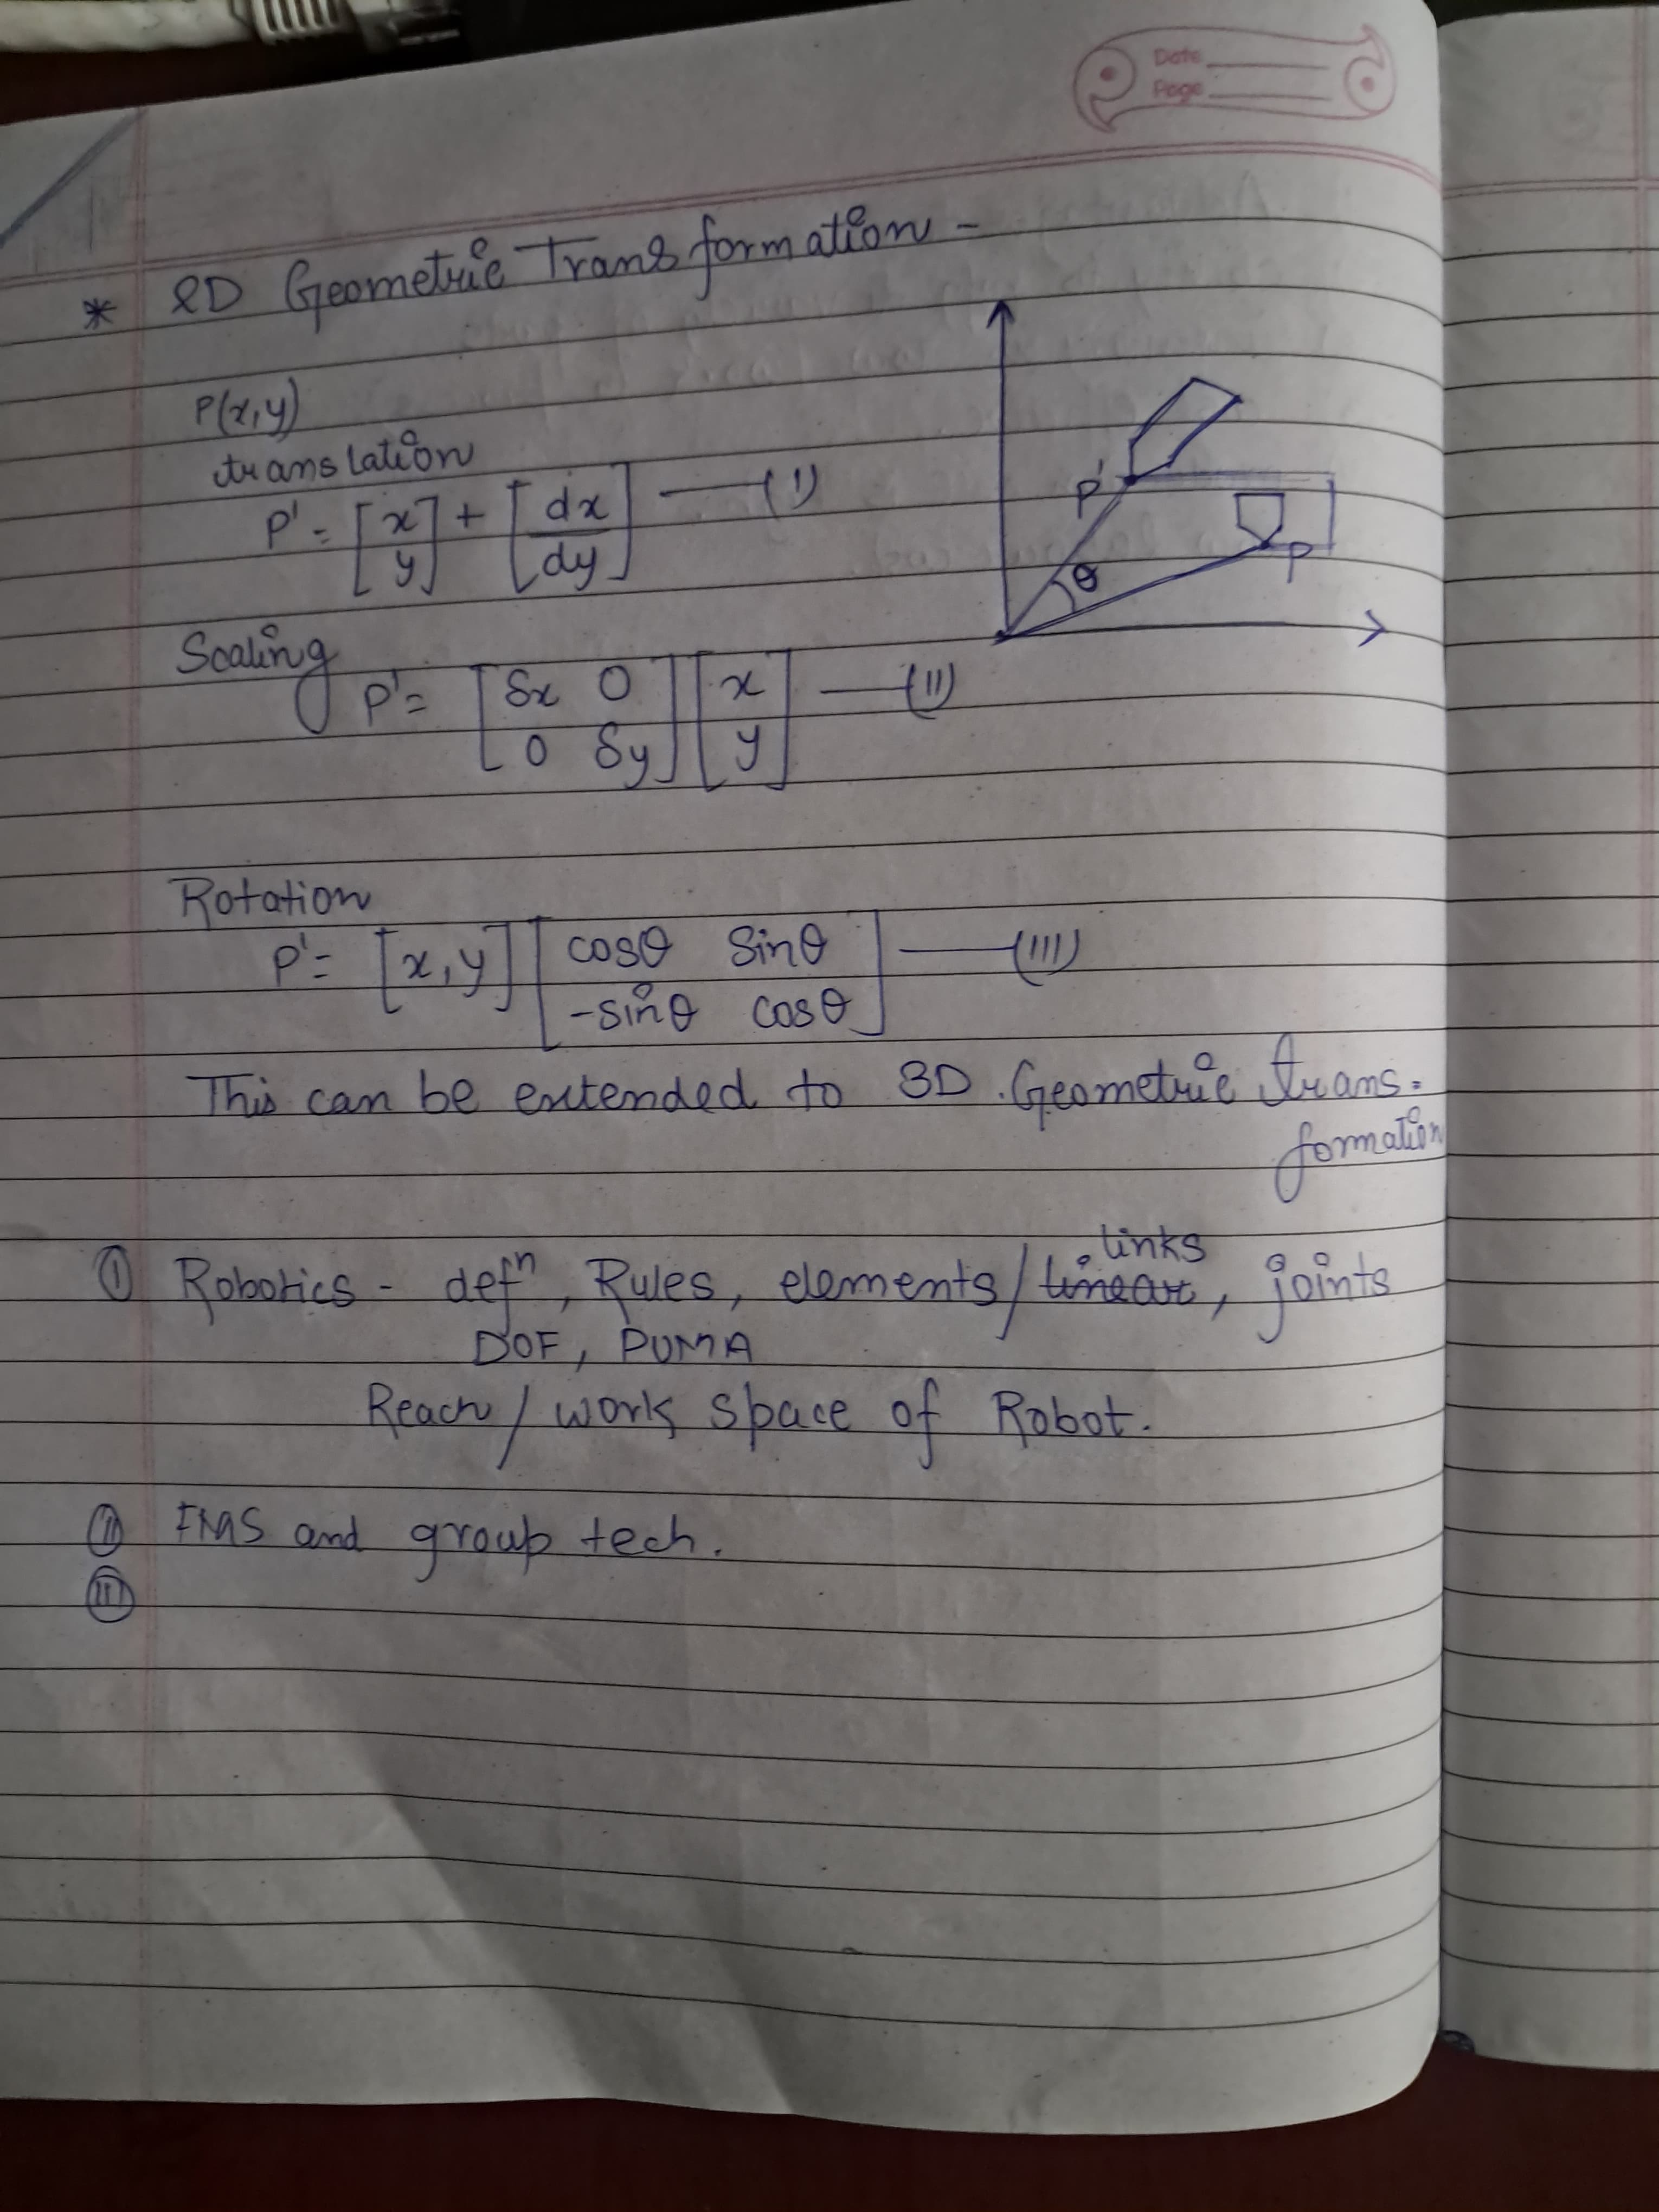 Date
Page
* 2D Geometric Transformation -
P(x,y)
translation
P' = [x y] + [dx dy] —(I)
P'
θ
P
Scaling
P' = [Sx 0 0 Sy] [x y] —(II)
Rotation
P' = [x,y] [cosθ Sinθ -sinθ cosθ] —(III)
This can be extended to 3D Geometric trans-
formation
links
① Robotics - defⁿ, Rules, elements/linear, joints
DOF, PUMA
Reach / work space of Robot.
Ⅱ FMS and group tech.
Ⅲ